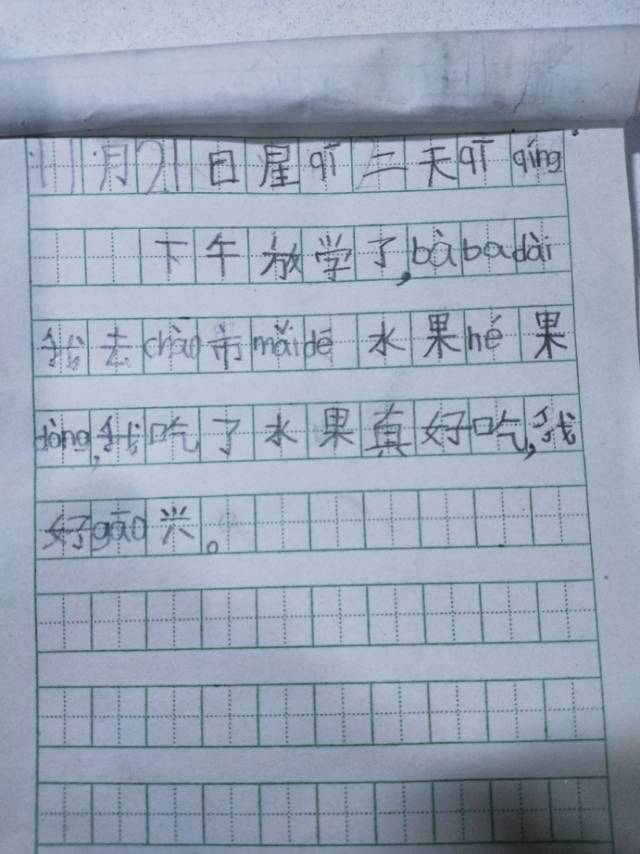 11月21日星qī二天qī qíng
下午放学了,bà ba dài
我去chāo市mǎi dé水果hé果
dòng,我吃了水果真好吃,我
好gāo兴。